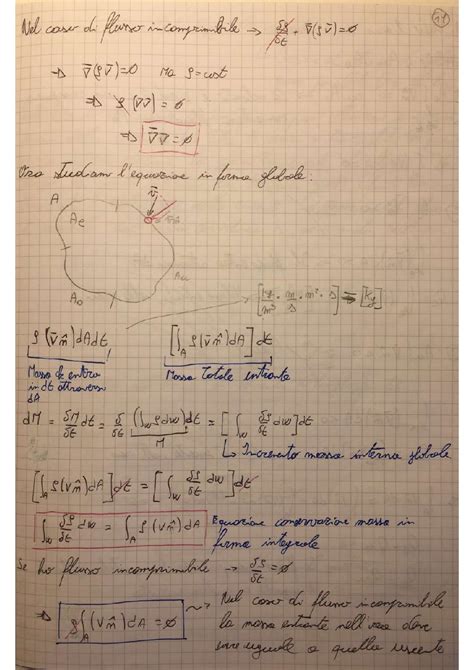 Nel caso di flusso incomprimibile → ∂ρ/∂t + ∇̄(ρv̄)=0
⇒ ∇̄(ρv̄)=0 Ma ρ=cost
⇒ ρ(∇̄v̄)=0
⇒ ∇̄v̄=0
Ora studiam l'equazione in forma globale:
A
Ae
v̄
dA
Au
Ao
[kg/m³ · m/s · m² · s] ⇒ [kg]
ρ(v̄n̂)dAdt [∫A ρ(v̄n̂)dA]dt
Massa che entra
in dt attraverso
dA
Massa Totale entrante
dM = ∂M/∂t dt = ∂/∂t (∫w ρdw)dt = [∫w ∂ρ/∂t dw]dt
M
↳ Incremento massa interna globale
[∫A ρ(vn̂)dA]dt = [∫w ∂ρ/∂t dw]dt
∫w ∂ρ/∂t dw = ∫A ρ(vn̂)dA Equazione conservazione massa in
forma integrale
Se ho flusso incomprimibile → ∂ρ/∂t = 0
⇒ ρ∫A(v̄n̂)dA = 0
Nel caso di flusso incomprimibile
la massa entrante nell'area deve
uguale a quella uscente